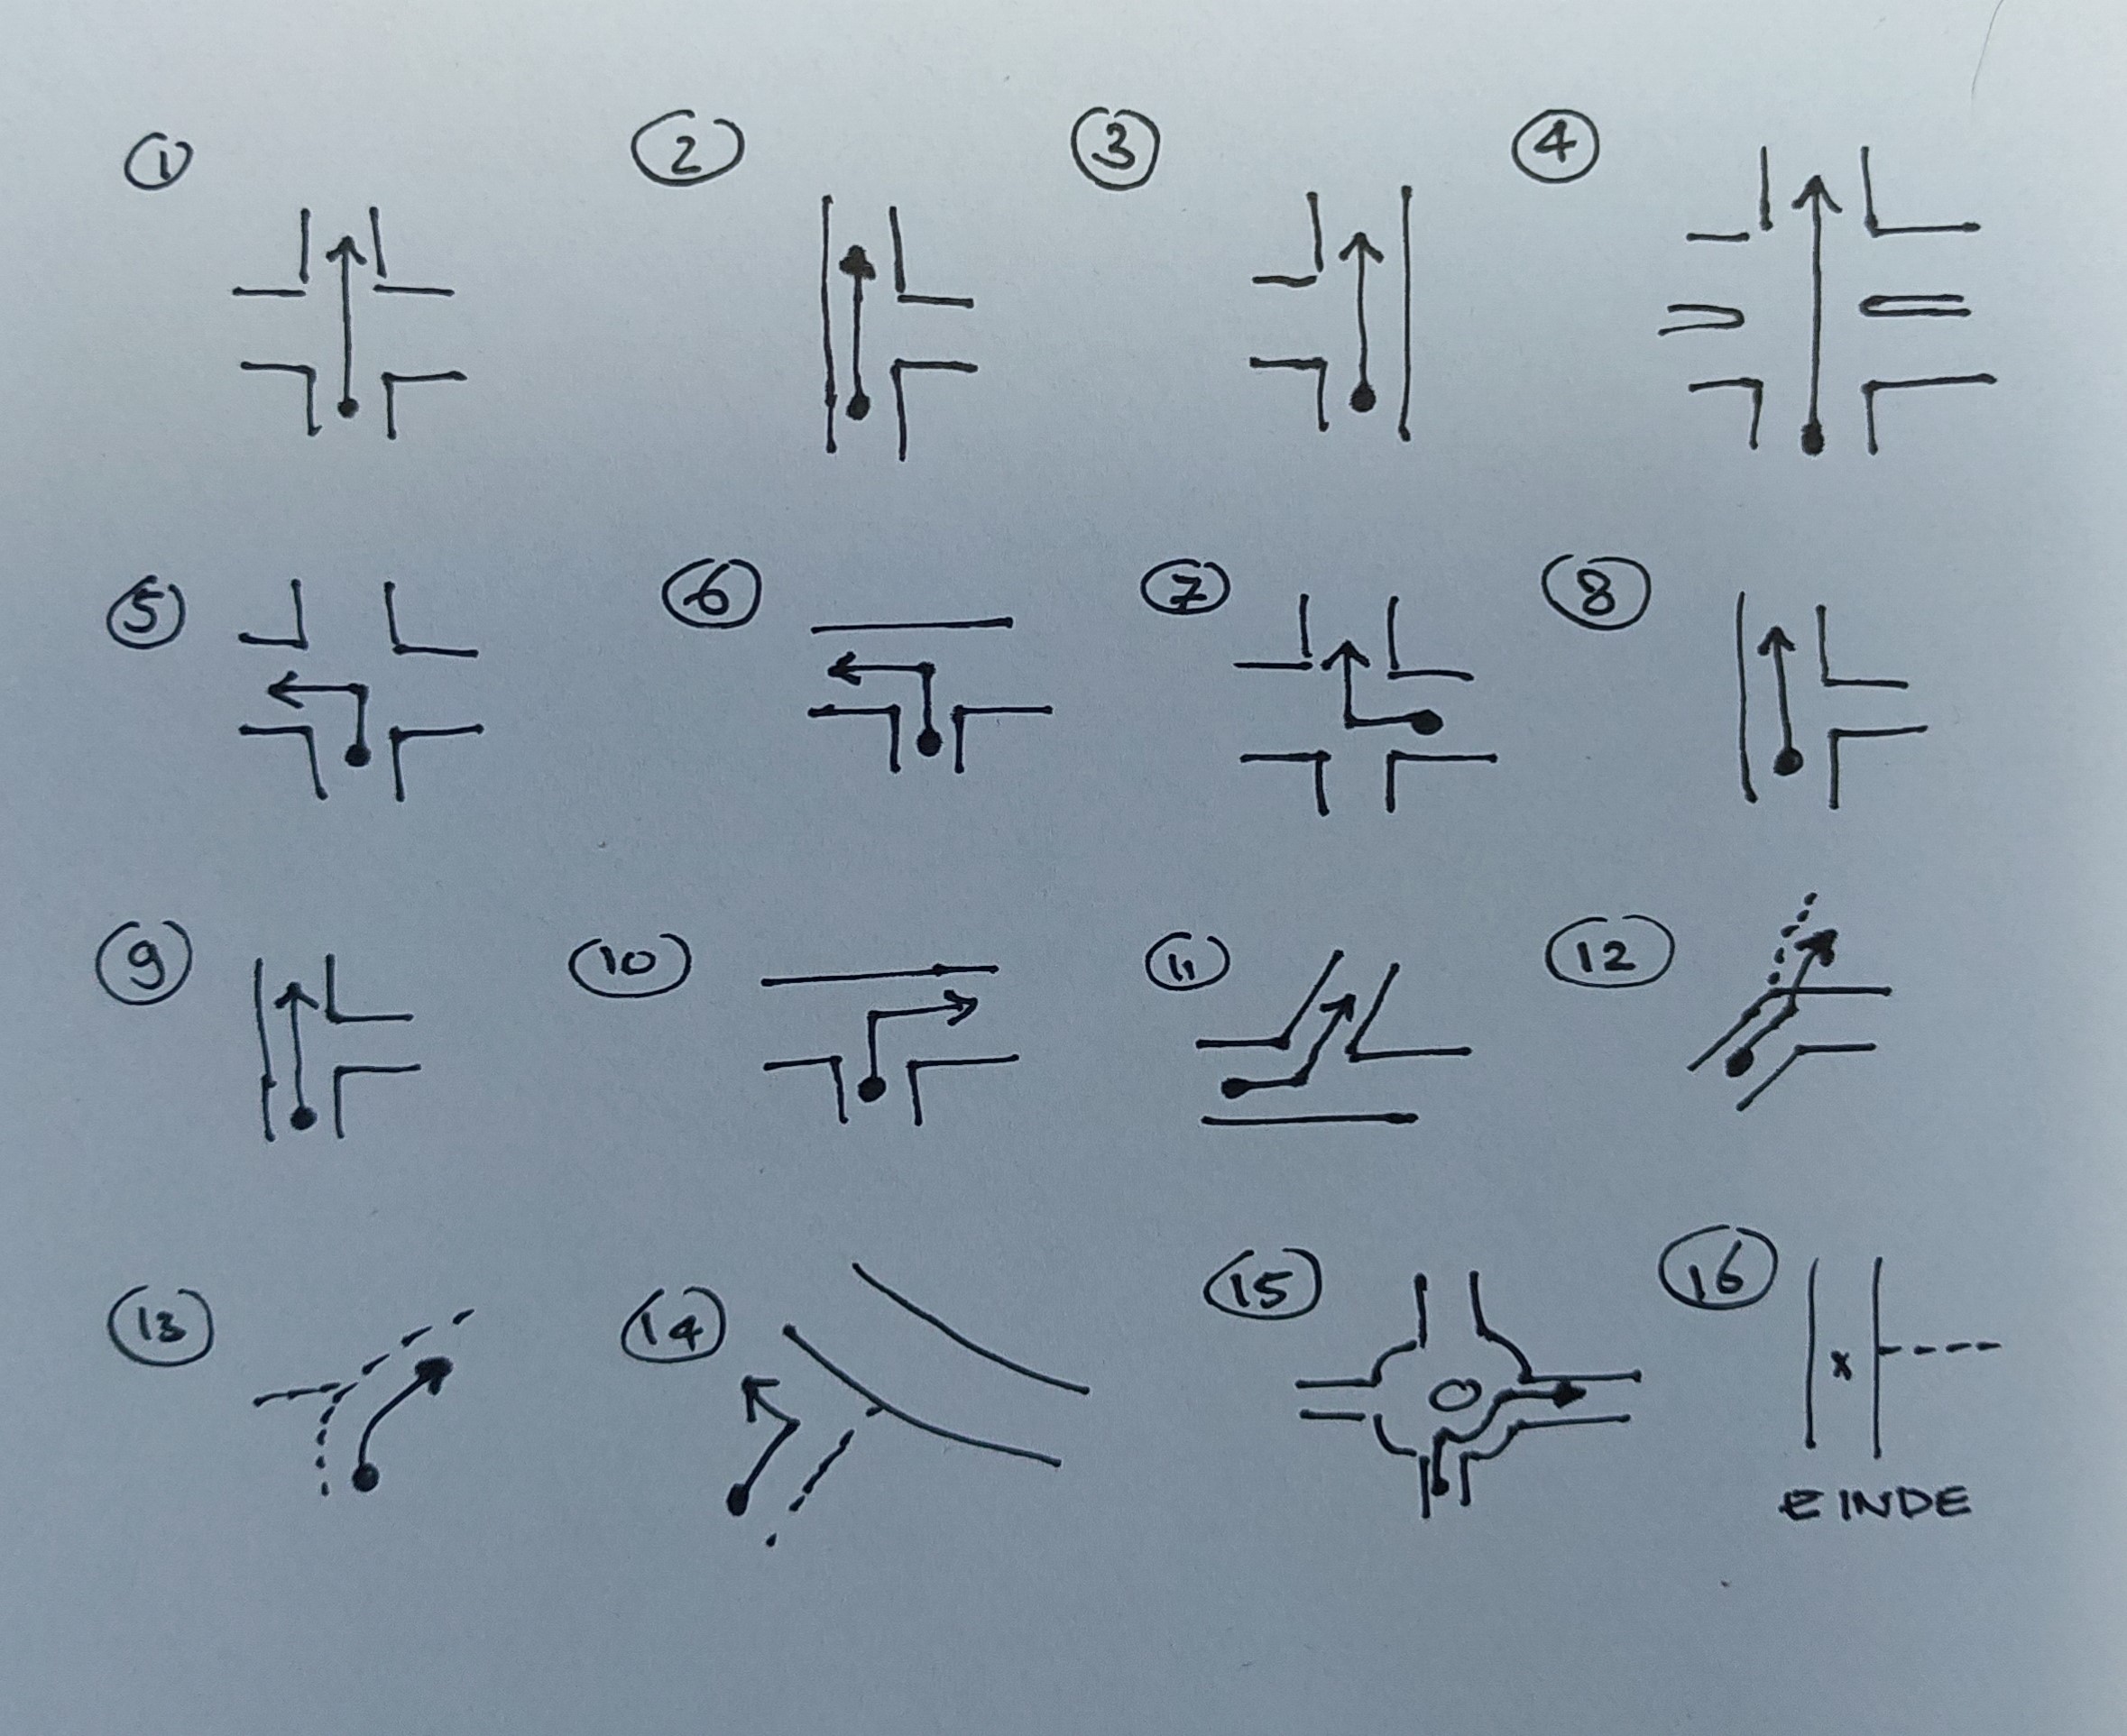 1 2 3 4
5 6 7 8
9 10 11 12
13 14 15 16
x
EINDE